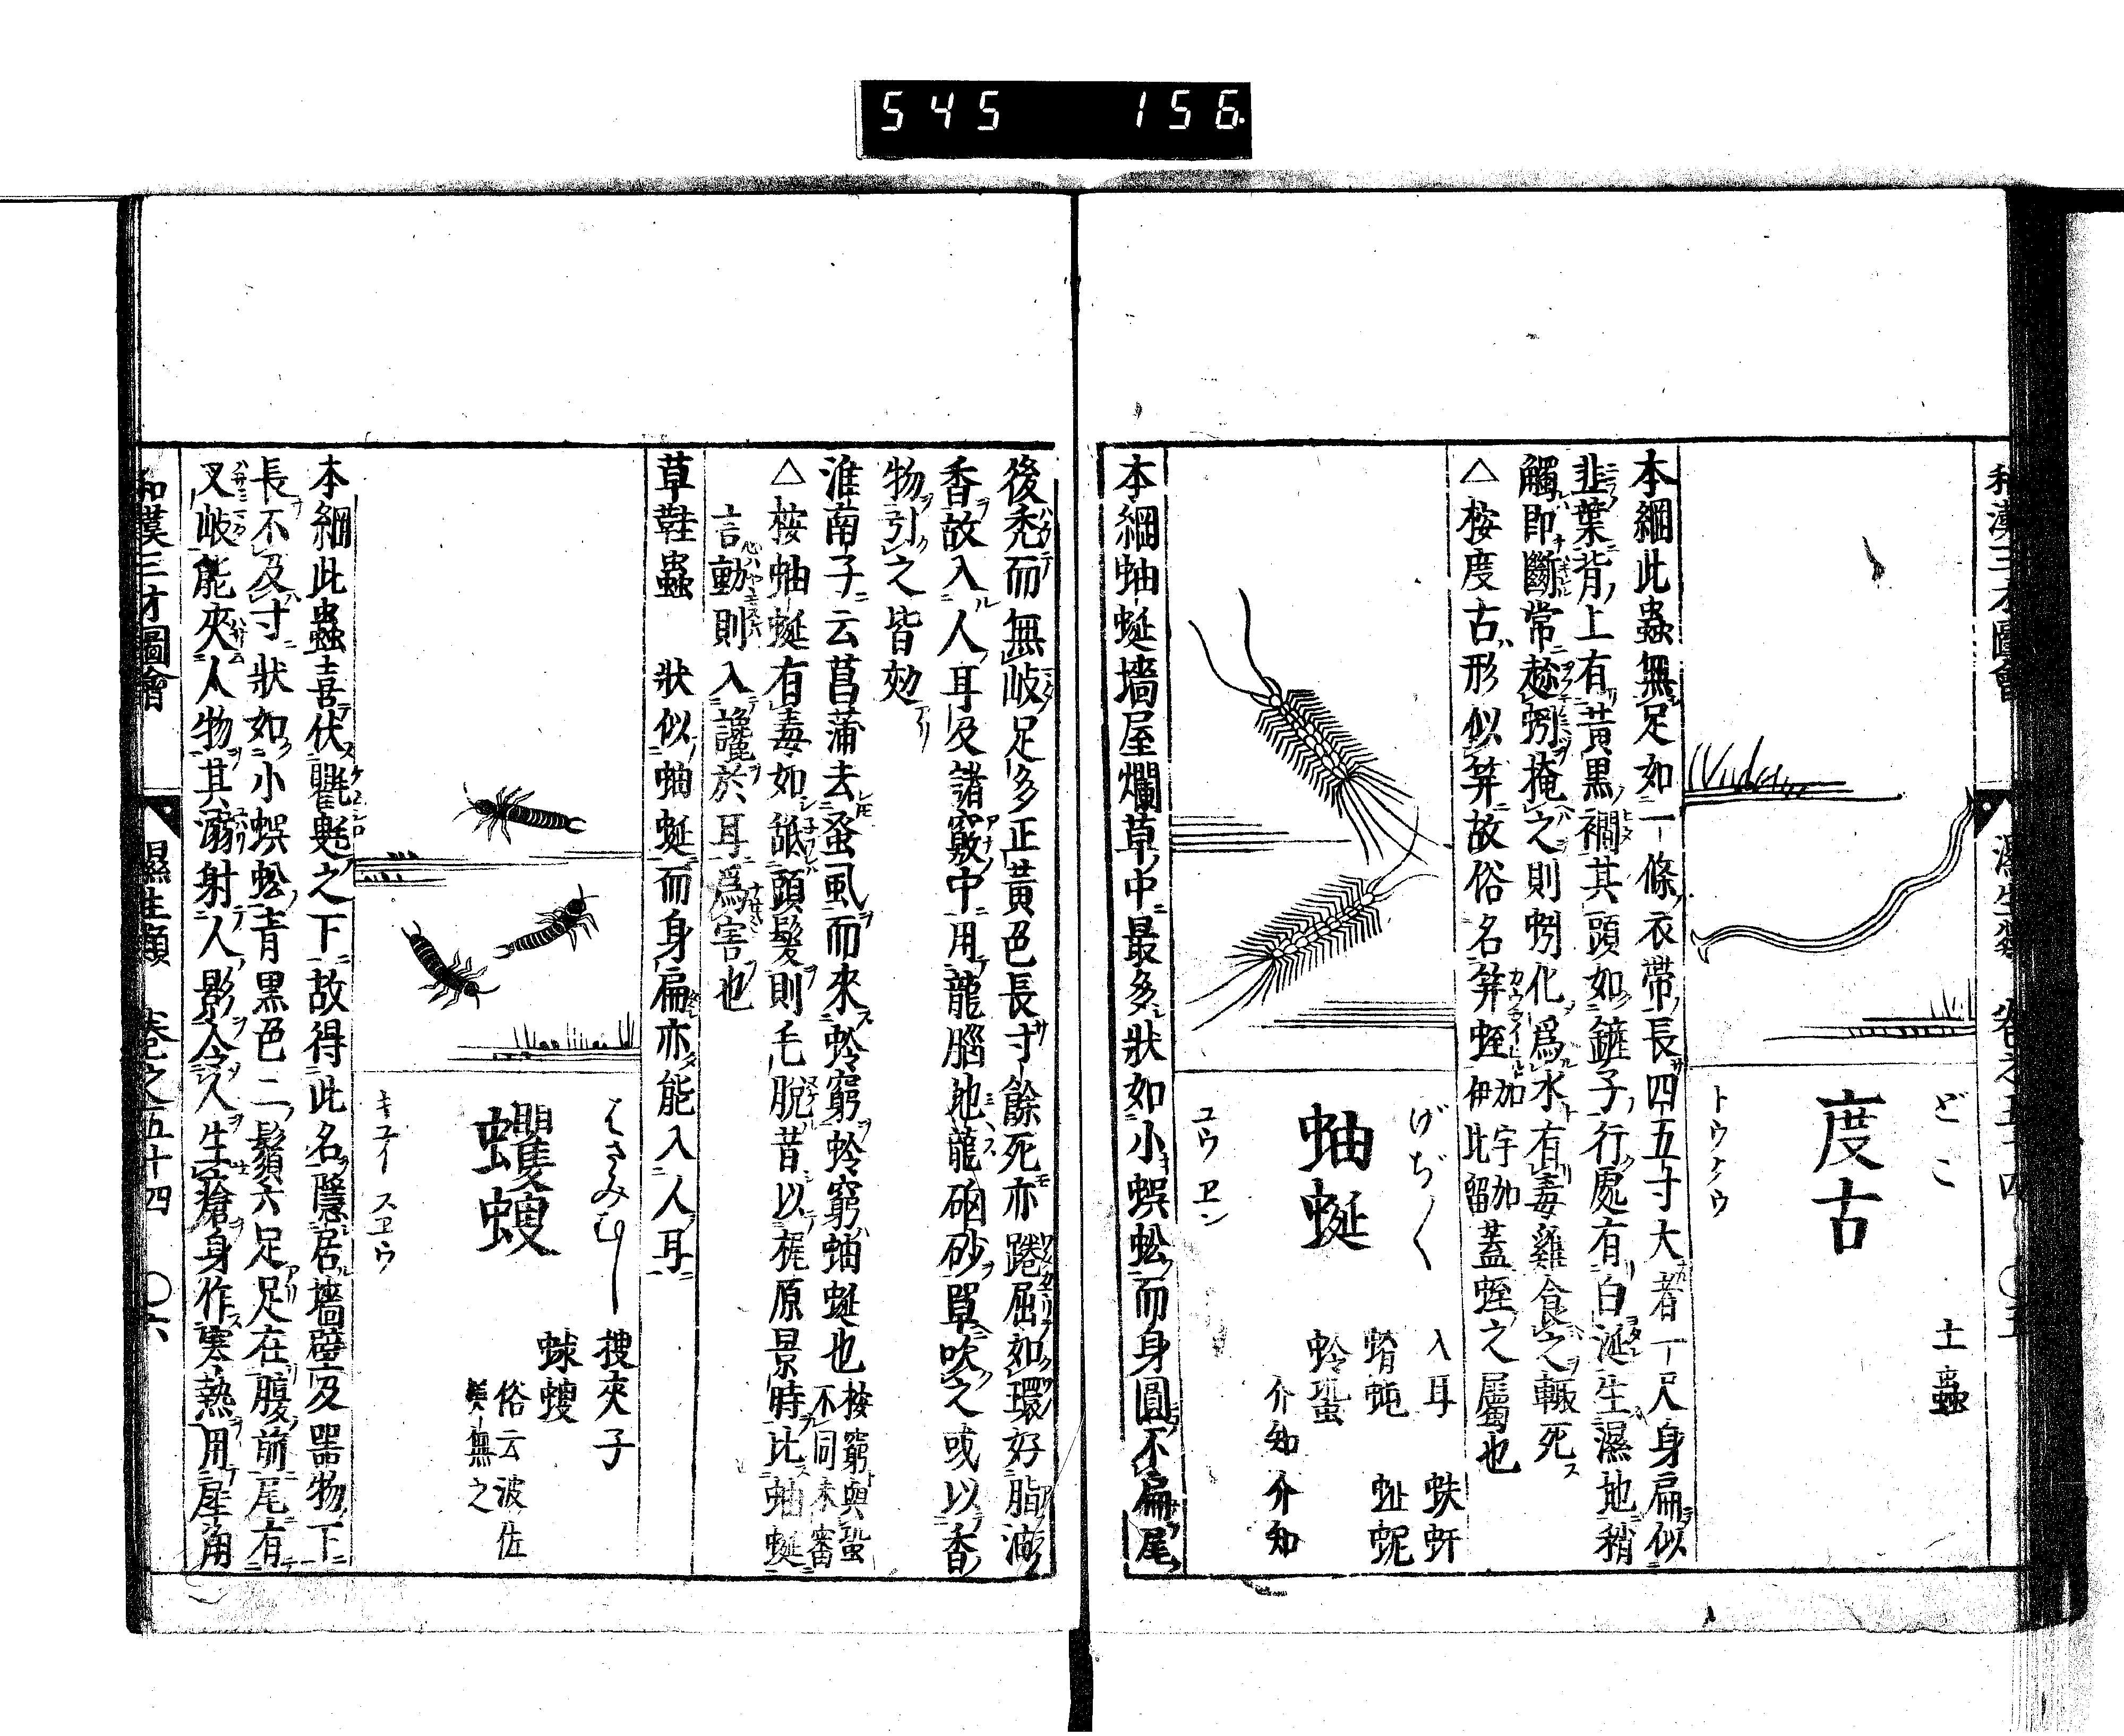 545 156
和漢三才圖會 濕生類 卷之五十四 〇五
度古
どこ
トウクウ
土蟲
本綱此蟲無足如一條衣帶長四五寸大者一尺身扁似
韭葉背上有黃黒襉其頭如鏟子行處有白涎生濕地稍
觸即斷常趁蚓掩之則蚓化爲水有毒雞食之輙死
△按度古形似笄故俗名笄蛭加宇加伊比留蓋蛭之屬也
蚰蜒
げぢ〱
ユウ ヱン
入耳 蚨虶
蝤𧉧 蚰蜒
蛉蛩
介知介知
本綱蚰蜒墻屋爛草中最多狀如小蜈蚣而身圓不扁尾
後禿而無岐足多正黃色長寸餘死亦踡屈如環好脂油
香故入人耳及諸竅中用龍腦地龍硇砂單吹之或以香
物引之皆効
淮南子云菖蒲去蚤虱而來蛉窮蛉窮蚰蜒也按窮與蛩不同未審
△按蚰蜒有毒如舐頭髮則毛脫昔以梶原景時比蚰蜒
言動則入讒於耳爲害也
草鞋蟲 狀似蚰蜒而身扁亦能入人耳
蠼螋
はさみむし
キユイ スヱウ
搜夾子
蛷螋
俗云波佐美無之
本綱此蟲喜伏氍𣯜之下故得此名隱居墻壁及器物下
長不及寸狀如小蜈蚣青黒色二鬚六足足在腹前尾有
叉岐能夾人物其溺射人影令人生瘡身作寒熱用犀角
和漢三才圖會 濕生類 卷之五十四 〇六